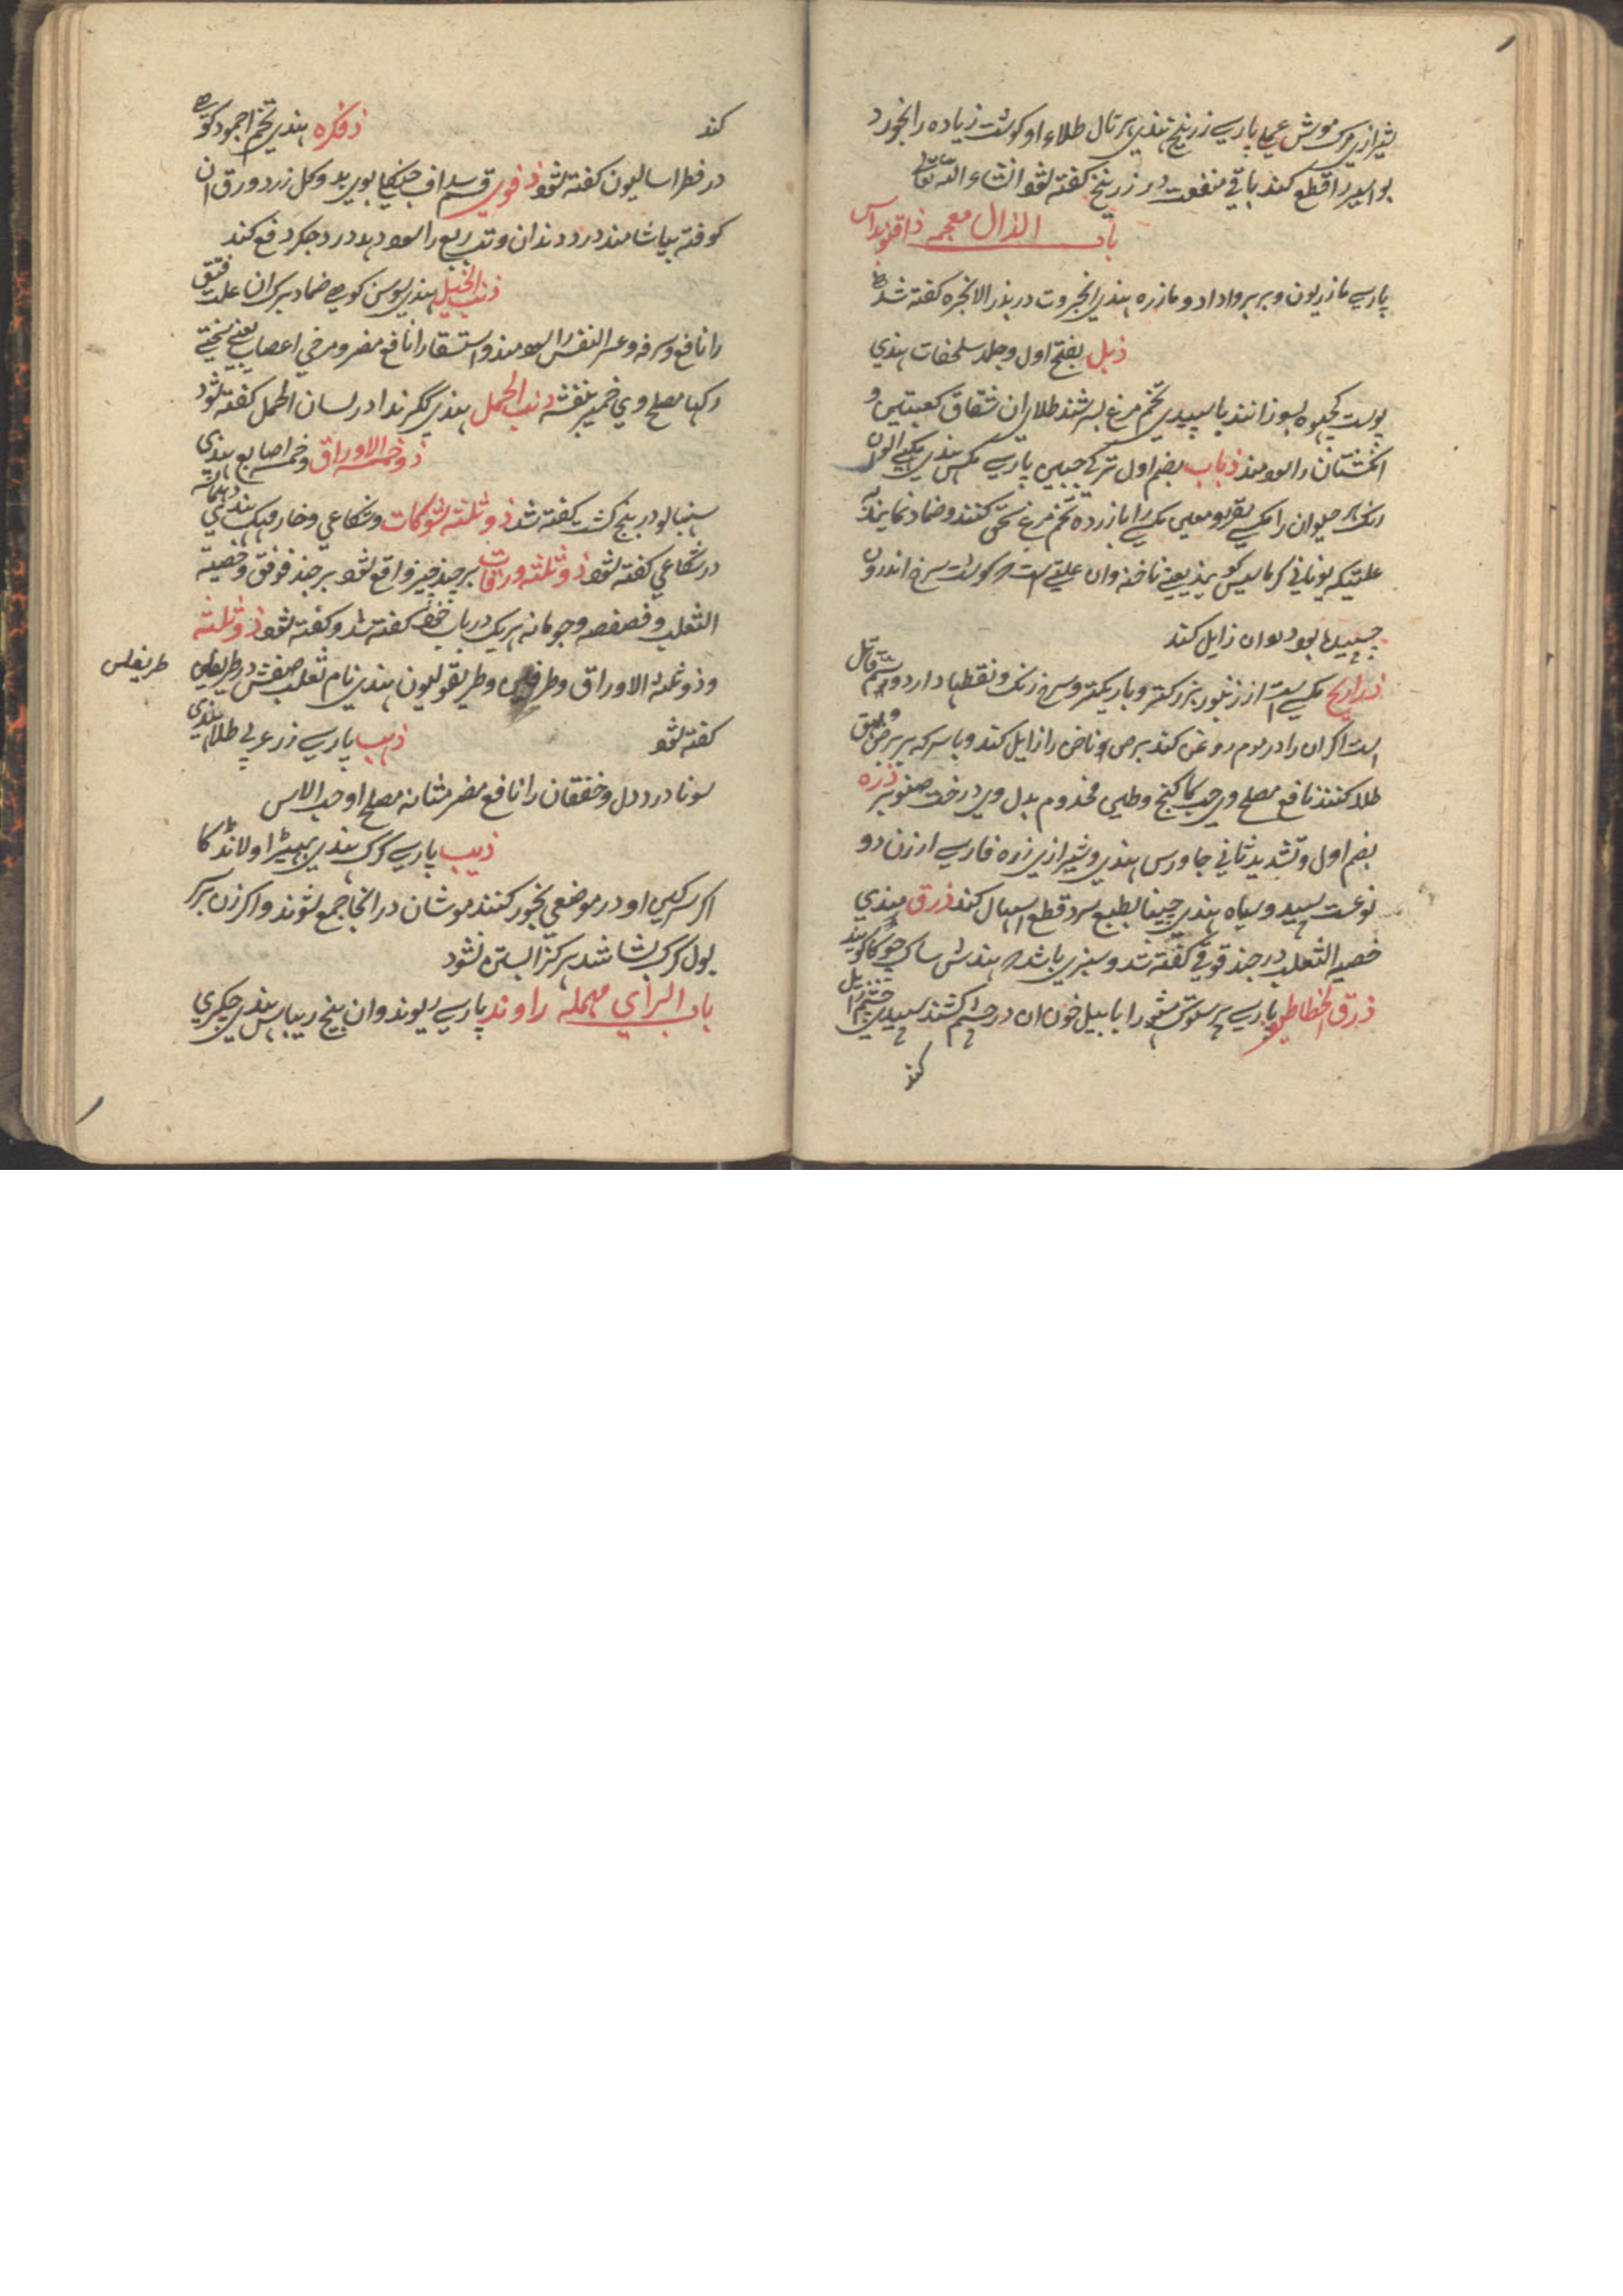 شیرازی مرک موش عمل پارسی زرنیخ هندی هرتال طلاء او کوشت زیاده را بخورد
بواسیر را قطع کند باقی منفعت در زرنیخ کفته شود انشاء الله تعالی
باب الذال معجمه
پارسی مازریون و بربر واداد و مازره هندی انجروت در بذر الانجره کفته شد
ذبل بفتح اول و جلد سلحفات هندی
پوست کچهوه بسوزانند با سپیدی تخم مرغ بسرشند طلاء ان شقاق کعبتین و
انکشتان را سود مند ذباب بضم اول ترکی جیبین پارسی مکس هندی مکهی
رنک هر حیوان را مکسی مقرر و معین مکسی را با زرده تخم مرغ سحق کنند و ضماد نمایند
علتیکه یونانی کویند یعنی ناخنه وان علتی است که کوشت سرخ اندرون
چسپیده بود وان زایل کند
ذراریح مکسی است از زنبور بزرکتر و باریکتر و سرخ رنک و نقطها دارد و سم قاتل
است اکر ان را در موم روغن کند برص و ناخن را زایل کند و با سرکه بر برص و بهق
طلا کنند نافع مصلح وی حب کاکنج و طین مختوم بدل وی درخت صنوبر ذره
بضم اول و تشدید ثانی جاورس هندی و شیرازی زره فارسی ارزن دو
نوعست سپید و سیاه هندی چینا بطبع سرد قطع اسهال کند ذرق هندی
خصیه الثعلب در چند قوقی کفته شد و سبزی باشد که هندش ساک چوکا کویند
ذرق الخطاطیف پارسی پرستوش مشهور ابابیل خون ان در چشم کشند سپیدی چشم زایل
کند
کند ذفکره هندی تخم اجمود کوهی
در فطراسالیون کفته شود ذفوی قسم سداف جنکلی بوی بد و کل زرد ورق ان
کوفته بیاشامند درد دندان و تب ربع را سود دهد درد جکر دفع کند
ذنب الخیل هندی سوسن کوهی ضماد برک ان علت فتق
را نافع و سرفه و عسر النفس را سودمند و استسقا را نافع مضر و مرخی اعصاب یعنی
رکها مصلح وی خمیر بنفشه ذنب الحمل هندی ککرندا در لسان الحمل کفته شود
ذو خمسة الاوراق و خمسه اصابع هندی
سنبهالو در پنج کشت کفته شد ذو ثلثه شوکات و شکاعی و خار مهک هندی
در شکاعی کفته شود ذو ثلثه ورقات بر چند چیز واقع شود بر چند قوقی و خصیة
الثعلب و فصفصه و جومانه هریک در باب خود کفته شد و کفته شود ذو ثلثه
و ذو ثلثة الاوراق و طریفلن و طریقولیون هندی نام ثعلب صفتش در طریفلن
طریفلن
کفته شود ذهب پارسی زر عربی طلا هندی
سونا درد دل و خفقان را نافع مضر مثانه مصلح او حب الاس
ذیب پارسی کرک هندی بهیریا و لاندکا
اکر سرکین او در موضعی بخور کنند موشان در انجا جمع شوند و اکر زن بر
بول کرک بشاشد هرکز ابستن نشود
باب الرای مهمله راوند پارسی ریوند وان بیخ ریباس هندی چکری